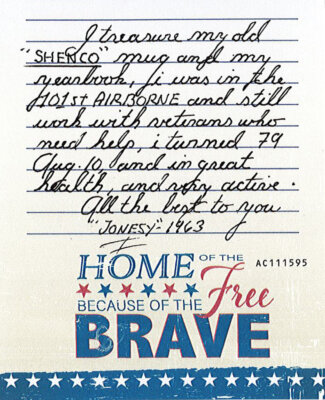 I treasure my old
"SHENCO" mug and my
yearbook, i was in the
101st AIRBORNE and still
work with veterans who
need help, i turned 79
Aug. 10 and in great
health, and very active.
All the best to you
"JONESY"-1963
HOME OF THE
Free
AC111595
BECAUSE OF THE
BRAVE